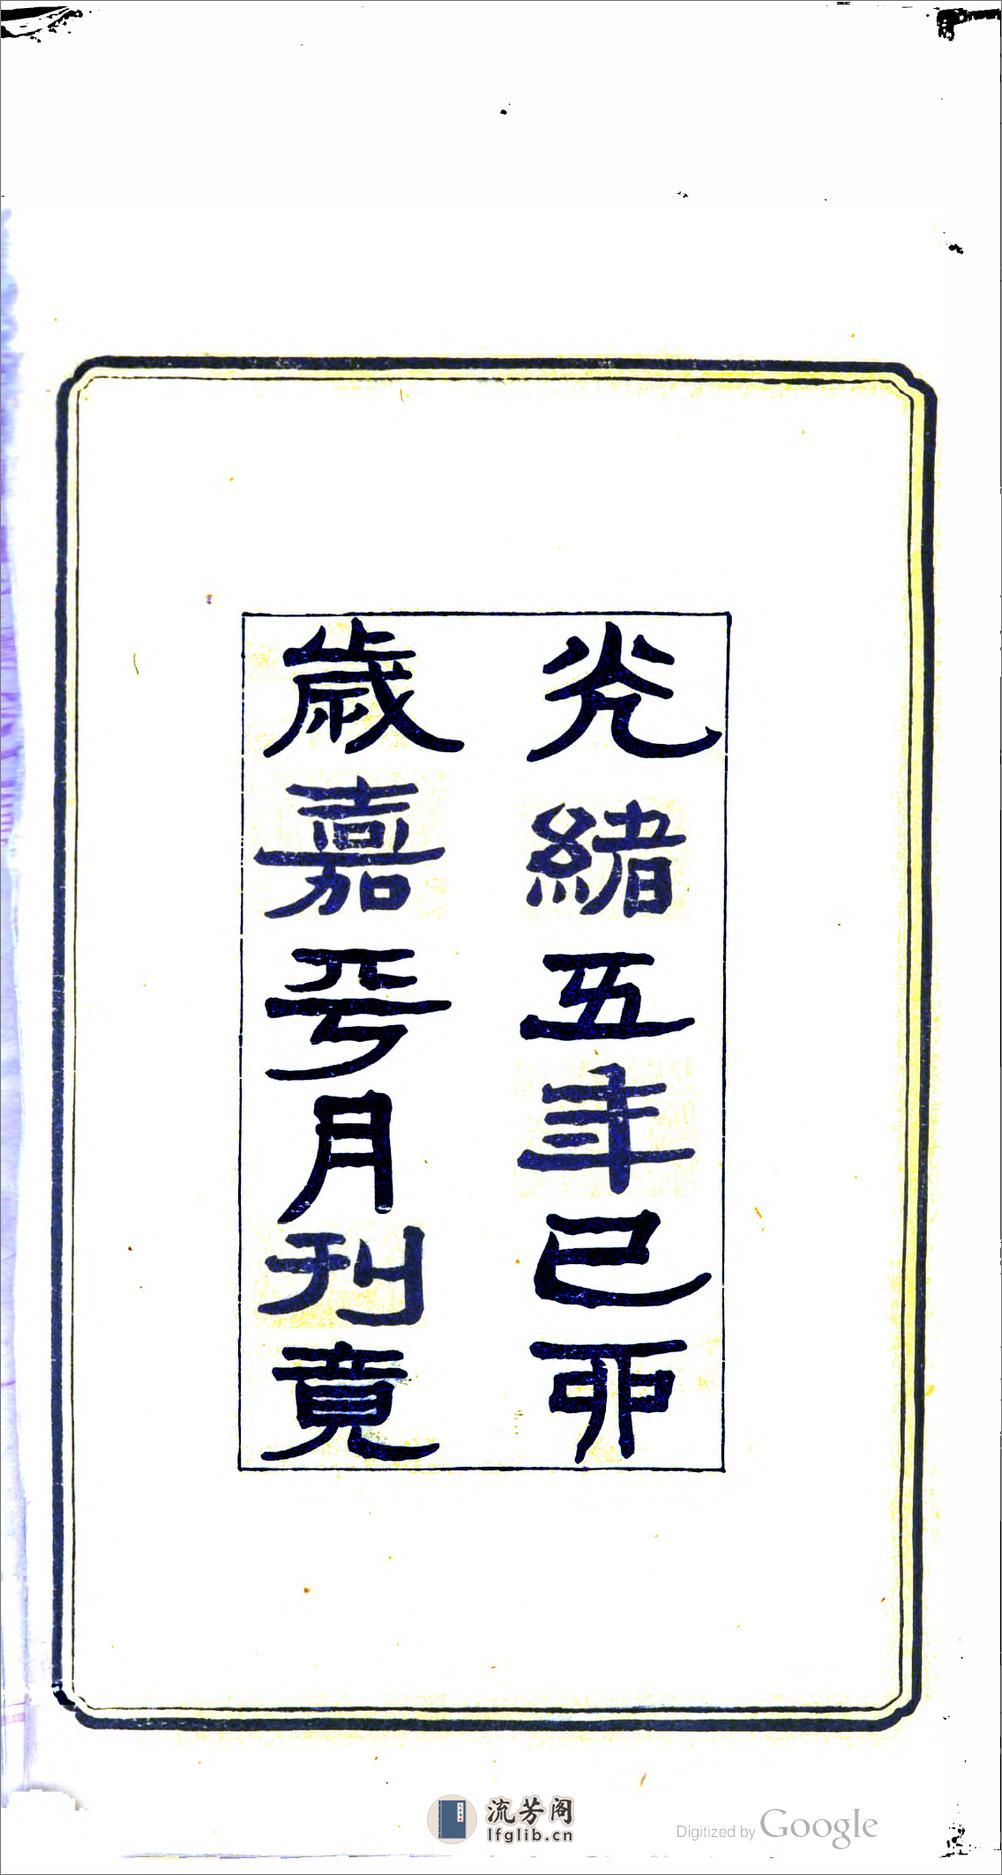 光緒五年己卯
歲嘉平月刊竟
流芳阁
lfglib.cn
Digitized by Google